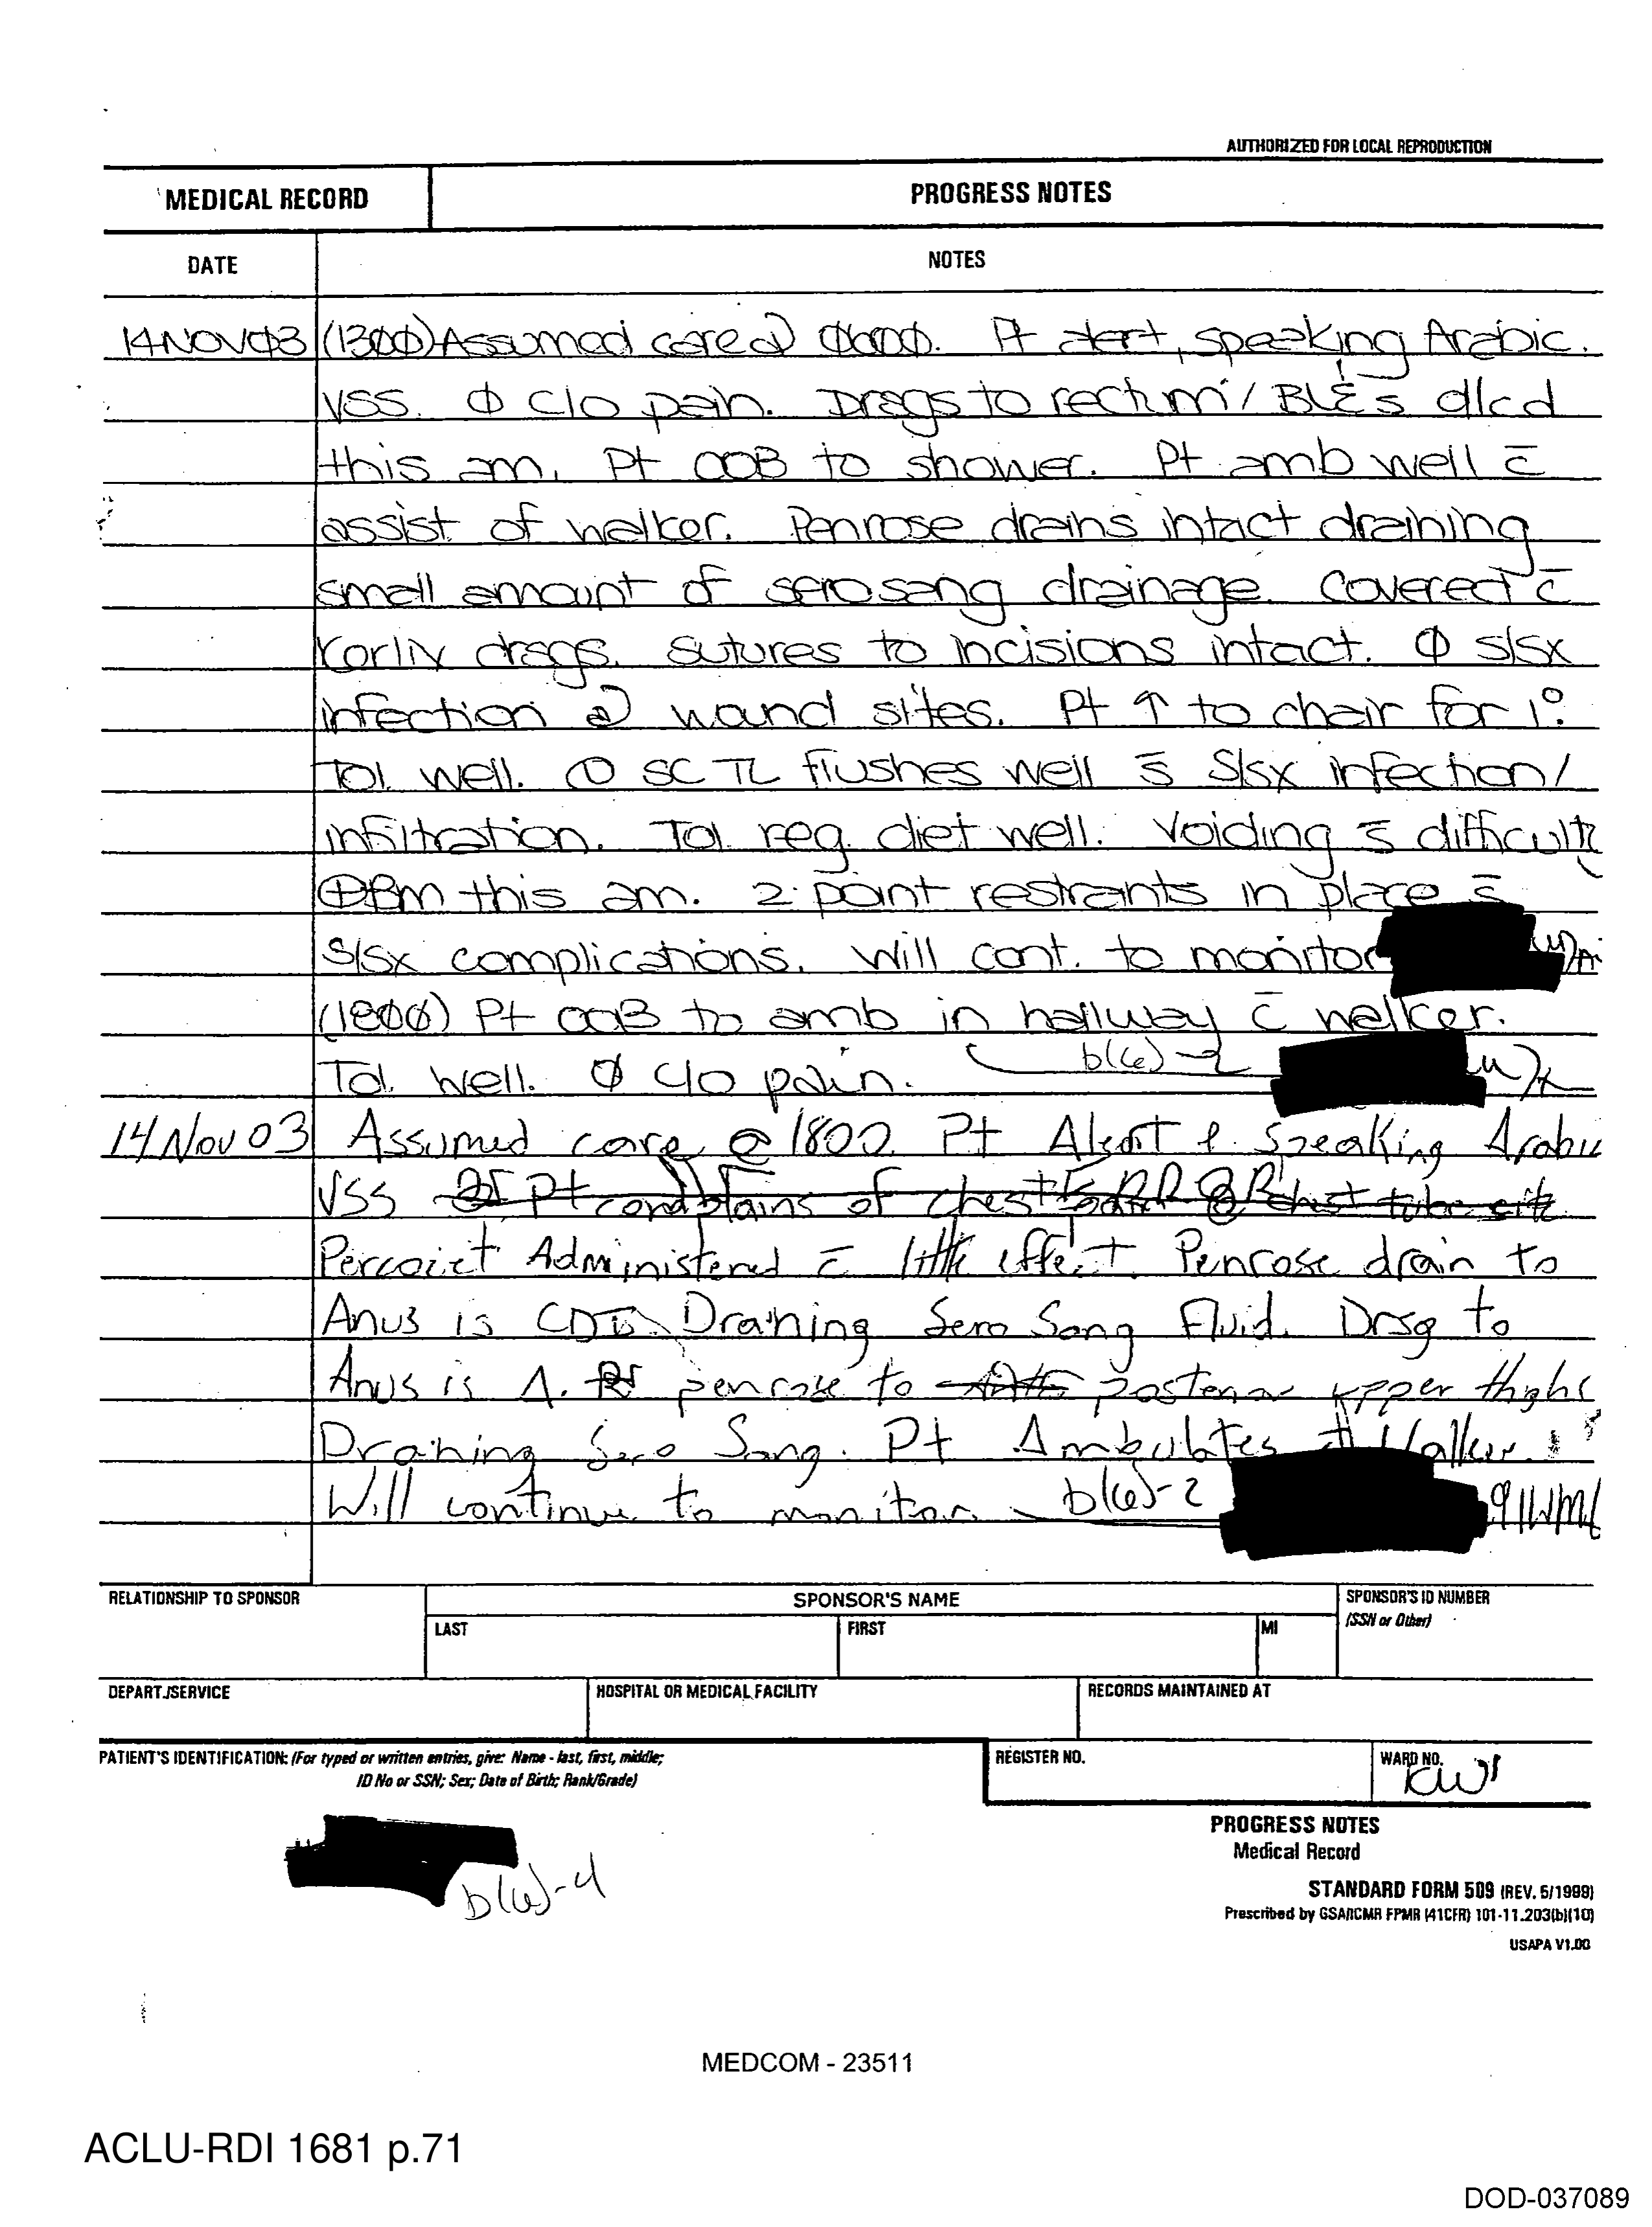 AUTHORIZED FOR LOCAL REPRODUCTION
MEDICAL RECORD
PROGRESS NOTES
DATE
NOTES
14NOV03 (1300) Assumed care @ 0600. Pt alert, speaking Arabic.
VSS. Ø c/o pain. Drsgs to rectum / BLE's d/cd
this am. Pt OOB to shower. Pt amb well c̄
assist of walker. Penrose drains intact draining
small amount of serosang drainage. Covered c̄
Kerlix drsgs. Sutures to incisions intact. Ø s/sx
infection @ wound sites. Pt ↑ to chair for 1°.
Tol well. SC TL flushes well s̄ s/sx infection/
infiltration. Tol reg. diet well. Voiding s̄ difficulty
⊕BM this am. 2 point restraints in place s̄
s/sx complications. Will cont. to monitor
(1800) Pt OOB to amb in hallway c̄ walker.
Tol well. Ø c/o pain. b(6)-2
14 Nov 03 Assumed care @ 1800. Pt Alert & Speaking Arabic
VSS Pt complains of chest chest tube site
Percocet Administered c̄ little effect. Penrose drain to
Anus is CDI Draining Sero Sang Fluid. Drsg to
Anus is penrose to posterior upper thighs
Draining Sero Sang. Pt Ambulates Walker.
Will continue to monitor b(6)-2 91WM6
RELATIONSHIP TO SPONSOR
SPONSOR'S NAME
SPONSOR'S ID NUMBER
(SSN or Other)
LAST
FIRST
MI
DEPART./SERVICE
HOSPITAL OR MEDICAL FACILITY
RECORDS MAINTAINED AT
PATIENT'S IDENTIFICATION: (For typed or written entries, give: Name - last, first, middle;
ID No or SSN; Sex; Date of Birth; Rank/Grade)
REGISTER NO.
WARD NO.
ICW1
b(6)-4
PROGRESS NOTES
Medical Record
STANDARD FORM 509 (REV. 5/1999)
Prescribed by GSA/ICMR FPMR (41CFR) 101-11.203(b)(10)
USAPA V1.00
MEDCOM - 23511
ACLU-RDI 1681 p.71
DOD-037089